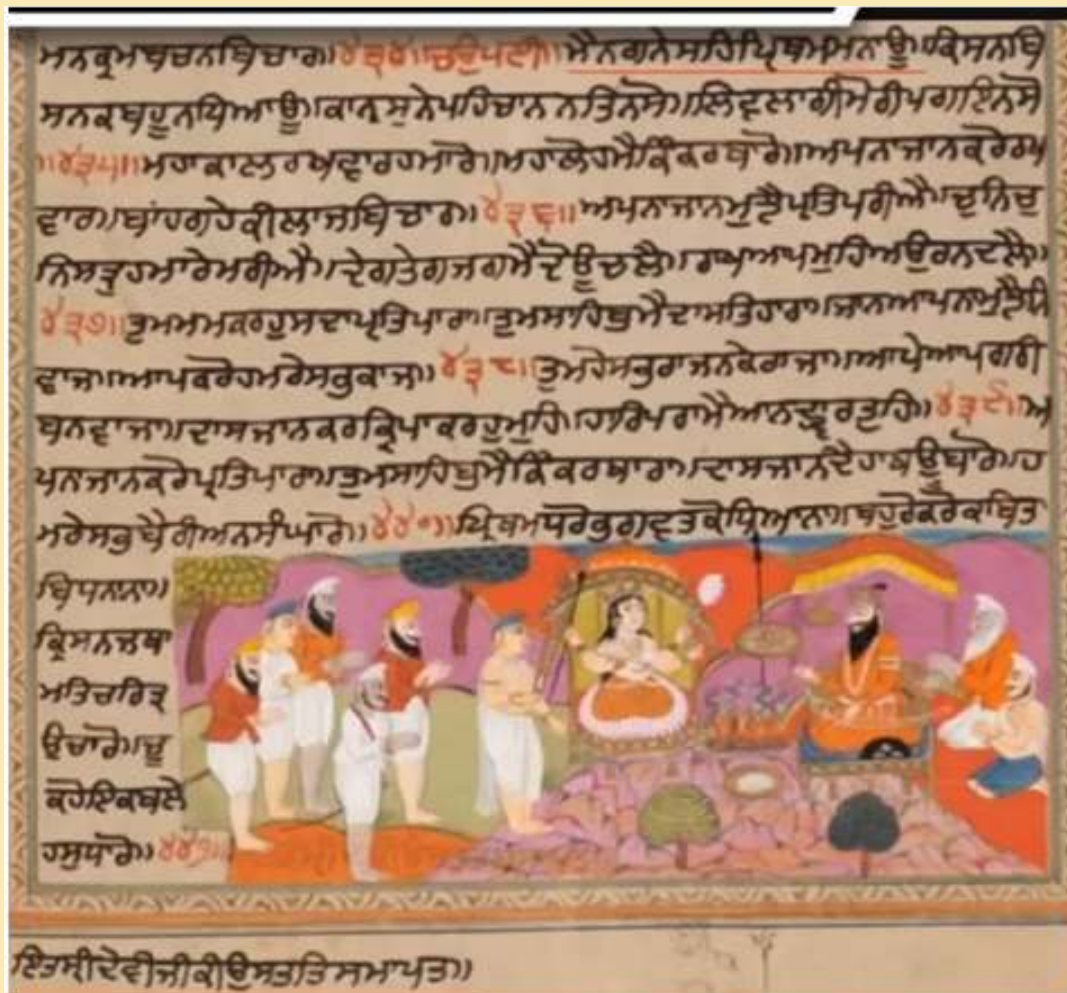 ਮਨਕ੍ਰਮਬਚਨਬਿਚਾਰ॥੪੩੪॥ਚਉਪਈ॥ਮੈਨਗਨੇਸਹਿਪ੍ਰਿਥਮਮਨਾਊ॥ਕਿਸਨਬਿ
ਸਨਕਬਹੂਨਧਿਆਊ॥ਕਾਨਸੁਨੇਪਹਿਚਾਨਨਤਿਨਸੋ॥ਲਿਵਲਾਗੀਮੋਰੀਪਗਇਨਸੋ
॥੪੩੫॥ਮਹਾਕਾਲਰਖਵਾਰਹਮਾਰੋ॥ਮਹਾਲੋਹਮੈਕਿੰਕਰਥਾਰੋ॥ਅਪਨਾਜਾਨਕਰੋਰਖ
ਵਾਰ॥ਬਾਂਹਗਹੇਕੀਲਾਜਬਿਚਾਰ॥੪੩੬॥ਅਪਨਾਜਾਨਮੁਝੈਪ੍ਰਤਿਪਰੀਐ॥ਚੁਨਿਚੁ
ਨਿਸਤ੍ਰੁਹਮਾਰੇਮਰੀਐ॥ਦੇਗਤੇਗਜਗਮੈਦੋਊਚਲੈ॥ਰਾਖਆਪਮੁਹਿਅਉਰਨਦਲੈ॥
੪੩੭॥ਤੁਮਮਮਕਰਹੁਸਦਾਪ੍ਰਤਿਪਾਰਾ॥ਤੁਮਸਾਹਿਬੁਮੈਦਾਸਤਿਹਾਰਾ॥ਜਾਨਆਪਨਾਮੁਝੈਨਿ
ਵਾਜ॥ਆਪਕਰੋਹਮਰੇਸਭੁਕਾਜ॥੪੩੮॥ਤੁਮਹੋਸਭੁਰਾਜਨਕੇਰਾਜਾ॥ਆਪੇਆਪਗਰੀ
ਬਨਵਾਜਾ॥ਦਾਸਜਾਨਕਰਕ੍ਰਿਪਾਕਰਹੁਮੁਹਿ॥ਹਾਰਿਪਰਾਮੈਆਨਦ੍ਵਾਰਤੁਹਿ॥੪੩੯॥ਅ
ਪਨਾਜਾਨਕਰੋਪ੍ਰਤਿਪਾਰਾ॥ਤੁਮਸਾਹਿਬੁਮੈਕਿੰਕਰਥਾਰਾ॥ਦਾਸਜਾਨਦੈਹਾਥਊਬਾਰੋ॥ਹ
ਮਰੇਸਭੁਬੈਰੀਅਨਸੰਘਾਰੋ॥੪੪੦॥ਪ੍ਰਿਥਮਧਰੋਭਗਵਤਕੋਧਿਆਨਾ॥ਬਹੁਰੋਕਰੋਕਾਬਿਤ
ਬਿਧਨਾਨਾ॥
ਕ੍ਰਿਸਨਜਥਾ
ਮਤਿਚਰਿਤ੍ਰ
ਉਚਾਰੋ॥ਚੂ
ਕਹੋਇਕਬਲੇ
ਹਸੁਧਾਰੋ॥੪੪੧॥
ਇਤਸ੍ਰੀਦੇਵੀਜੀਕੀਉਸਤਤਿਸਮਾਪਤ॥